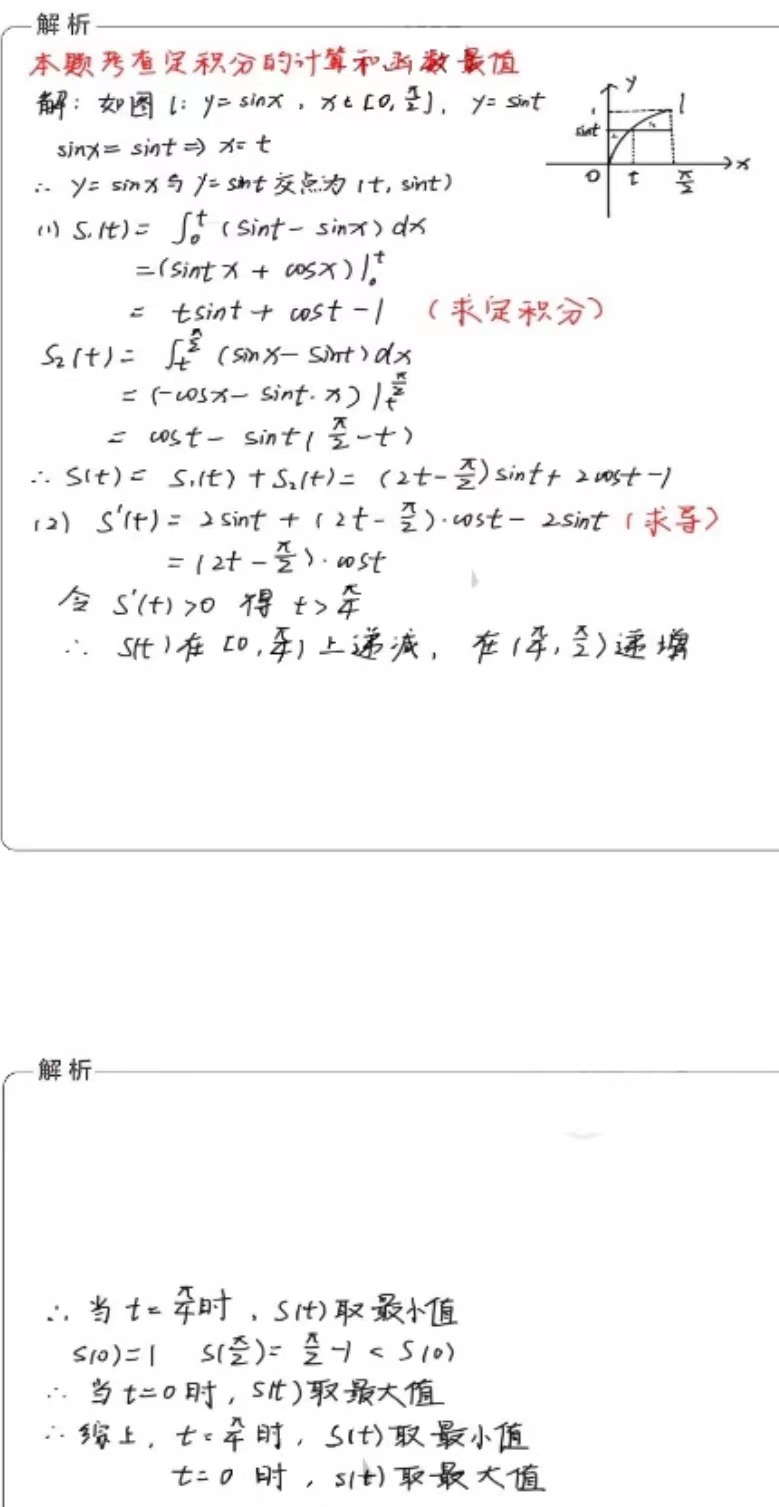 解析
本题考查定积分的计算和函数最值
解：如图 l: y=sinx，x∈[0, π/2]，y=sint
sinx=sint⇒x=t
∴ y=sinx与y=sint交点为(t, sint)
(1) S₁(t)= ∫₀ᵗ (sint-sinx)dx
=(sint x + cosx)|₀ᵗ
= tsint+cost-1 （求定积分）
S₂(t)= ∫_t^{π/2} (sinx-sint)dx
=(-cosx-sint·x)|_t^{π/2}
= cost-sint(π/2-t)
∴ S(t)= S₁(t)+S₂(t)=(2t-π/2)sint+2cost-1
(2) S'(t)=2sint+(2t-π/2)·cost-2sint（求导）
=(2t-π/2)·cost
令 S'(t)>0 得 t>π/4
∴ S(t)在[0, π/4)上递减，在(π/4, π/2)递增
y
1
l
sint
O
t
π/2
x
解析
∴ 当t=π/4时，S(t)取最小值
S(0)=1 S(π/2)=π/2-1<S(0)
∴ 当t=0时，S(t)取最大值
∴ 综上，t=π/4时，S(t)取最小值
t=0时，s(t)取最大值